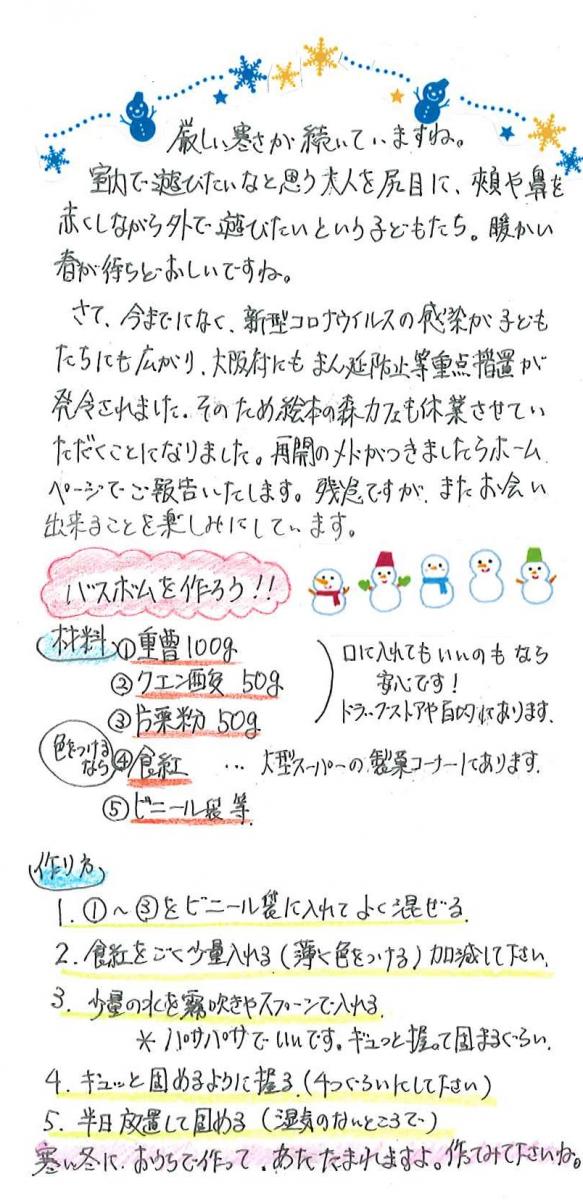 厳しい寒さが続いていますね。
室内で遊びたいなと思う大人を尻目に、頬や鼻を
赤くしながら外で遊びたいという子どもたち。暖かい
春が待ちどおしいですね。
さて、今までになく、新型コロナウイルスの感染が子ども
たちにも広がり、大阪府にもまん延防止等重点措置が
発令されました。そのため絵本の森カフェも休業させてい
ただくことになりました。再開のメドがつきましたらホーム
ページでご報告いたします。残念ですが、またお会い
出来ることを楽しみにしています。
バスボムを作ろう!!
材料 ①重曹100g
②クエン酸 50g
③片栗粉 50g
口に入れてもいいのもなら
安心です!
ドラックストアや百均にあります。
色をつける
なら
④食紅 … 大型スーパーの製菓コーナーにあります。
⑤ビニール袋等
作り方
1. ①〜③をビニール袋に入れてよく混ぜる
2. 食紅をごく少量入れる(薄く色をつける)加減して下さい。
3. 少量の水を霧吹きやスプーンで入れる
* パサパサでいいです。ギュっと握って固まるぐらい。
4. ギュッと固めるように握る(4つぐらいにして下さい)
5. 半日放置して固める(湿気のないところで)
寒い冬に、おうちで作って、あたたまれますよ。作ってみて下さいね。